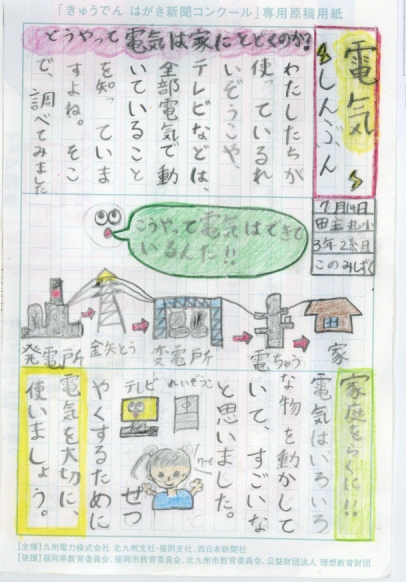 「きゅうでん はがき新聞コンクール」専用原稿用紙
電気しんぶん
どうやって電気は家にとどくのか?
わたしたちが
使っているれ
いぞうこや、
テレビなどは、
全部電気で動
いていること
を知っていま
すよね。そこ
で、調べてみました
7月14日
田主丸小
3年2組
このみしずく
こうやって電気はできて
いるんだ!!
発電所
鉄とう
変電所
電ちゅう
家
家庭をらくに!!
電気はいろいろ
な物を動かして
いて、すごいな
と思いました。
れいぞうこ
テレビ
ワーイ
せつ
やくするために
電気を大切に、
使いましょう。
【主催】九州電力株式会社 北九州支社・福岡支社、西日本新聞社
【後援】福岡県教育委員会、福岡市教育委員会、北九州市教育委員会、公益財団法人 理想教育財団